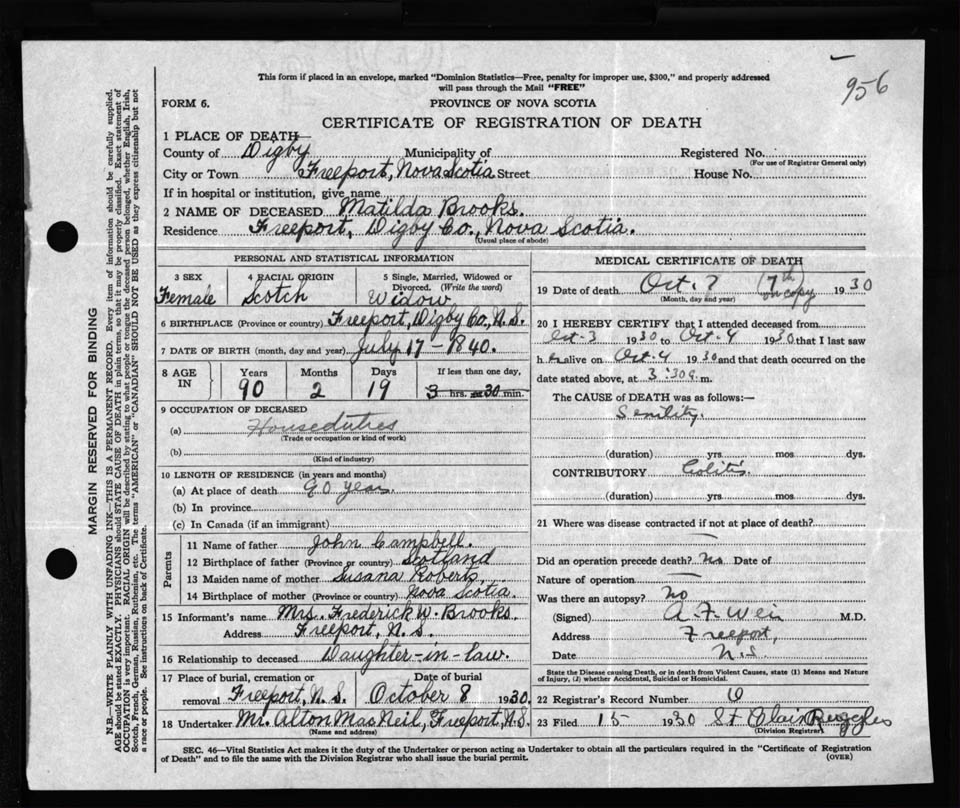 956
This form if placed in an envelope, marked "Dominion Statistics—Free, penalty for improper use, $300," and properly addressed
will pass through the Mail "FREE"
FORM 6.
PROVINCE OF NOVA SCOTIA
CERTIFICATE OF REGISTRATION OF DEATH
1 PLACE OF DEATH—
County of Digby Municipality of Registered No.
(For use of Registrar General only)
City or Town Freeport, Nova Scotia Street House No.
If in hospital or institution, give name
2 NAME OF DECEASED Matilda Brooks.
Residence Freeport, Digby Co., Nova Scotia.
(Usual place of abode)
PERSONAL AND STATISTICAL INFORMATION
3 SEX
Female
4 RACIAL ORIGIN
Scotch
5 Single, Married, Widowed or
Divorced. (Write the word)
Widow
6 BIRTHPLACE (Province or country) Freeport, Digby Co., N.S.
7 DATE OF BIRTH (month, day and year) July 17-1840.
8 AGE IN
Years Months Days If less than one day,
90 2 19 3 hrs. or 30 min.
9 OCCUPATION OF DECEASED
(a) Houseduties
(Trade or occupation or kind of work)
(b)
(Kind of industry)
10 LENGTH OF RESIDENCE (in years and months)
(a) At place of death 90 years.
(b) In province
(c) In Canada (if an immigrant)
Parents
11 Name of father John Campbell.
12 Birthplace of father (Province or country) Scotland
13 Maiden name of mother Susana Roberts
14 Birthplace of mother (Province or country) Nova Scotia.
15 Informant's name Mrs. Frederick W. Brooks.
Address Freeport, N.S.
16 Relationship to deceased Daughter-in-law.
17 Place of burial, cremation or Date of burial
removal Freeport, N.S. October 8 1930.
18 Undertaker Mr. Alton MacNeil, Freeport, N.S.
(Name and address)
MEDICAL CERTIFICATE OF DEATH
19 Date of death Oct. 7 (7th on copy) 1930
(Month, day and year)
20 I HEREBY CERTIFY that I attended deceased from
Oct-3 1930 to Oct-4 1930 that I last saw
h alive on Oct-4 1930 and that death occurred on the
date stated above, at 3:30 a.m.
The CAUSE of DEATH was as follows:—
Senility.
(duration) yrs. mos. dys.
CONTRIBUTORY Colitis
(duration) yrs. mos. dys.
21 Where was disease contracted if not at place of death?
Did an operation precede death? No Date of
Nature of operation
Was there an autopsy? No
(Signed) A. F. Weir M.D.
Address Freeport,
Date N.S
State the Disease causing Death, or in death from Violent Causes, state (1) Means and Nature
of Injury, (2) whether Accidental, Suicidal or Homicidal.
22 Registrar's Record Number 6
23 Filed 15 1930 St Clair Ruggles
(Division Registrar)
SEC. 46—Vital Statistics Act makes it the duty of the Undertaker or person acting as Undertaker to obtain all the particulars required in the "Certificate of Registration
of Death" and to file the same with the Division Registrar who shall issue the burial permit.
(OVER)
MARGIN RESERVED FOR BINDING
N.B.—WRITE PLAINLY WITH UNFADING INK—THIS IS A PERMANENT RECORD. Every item of information should be carefully supplied.
AGE should be stated EXACTLY. PHYSICIANS should STATE CAUSE OF DEATH in plain terms, so that it may be properly classified. Exact statement of
OCCUPATION is very important. RACIAL ORIGIN will be described by stating to what people or tongue the deceased person belonged, whether English, Irish,
Scotch, French, German, Russian, Ruthenian, etc. The terms "AMERICAN" or "CANADIAN" SHOULD NOT BE USED as they express citizenship but not
a race or people. See instructions on back of Certificate.